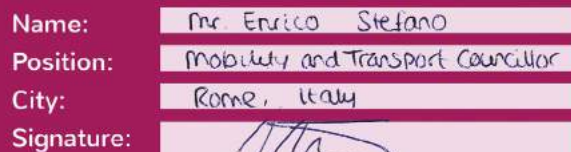 Name: Mr. Enrico Stefano
Position: Mobility and Transport Councillor
City: Rome, Italy
Signature: